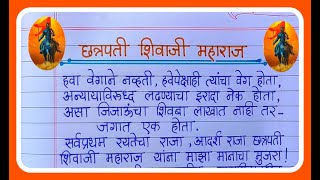 छत्रपती शिवाजी महाराज
हवा वेगाने नव्हती, हवेपेक्षाही त्यांचा वेग होता,
अन्यायाविरुध्द लढण्याचा इरादा नेक होता,
असा जिजाऊंचा शिवबा लाखात नाही तर-
जगात एक होता.
सर्वप्रथम रयतेचा राजा, आदर्श राजा छत्रपती
शिवाजी महाराज यांना माझा मानाचा मुजरा!